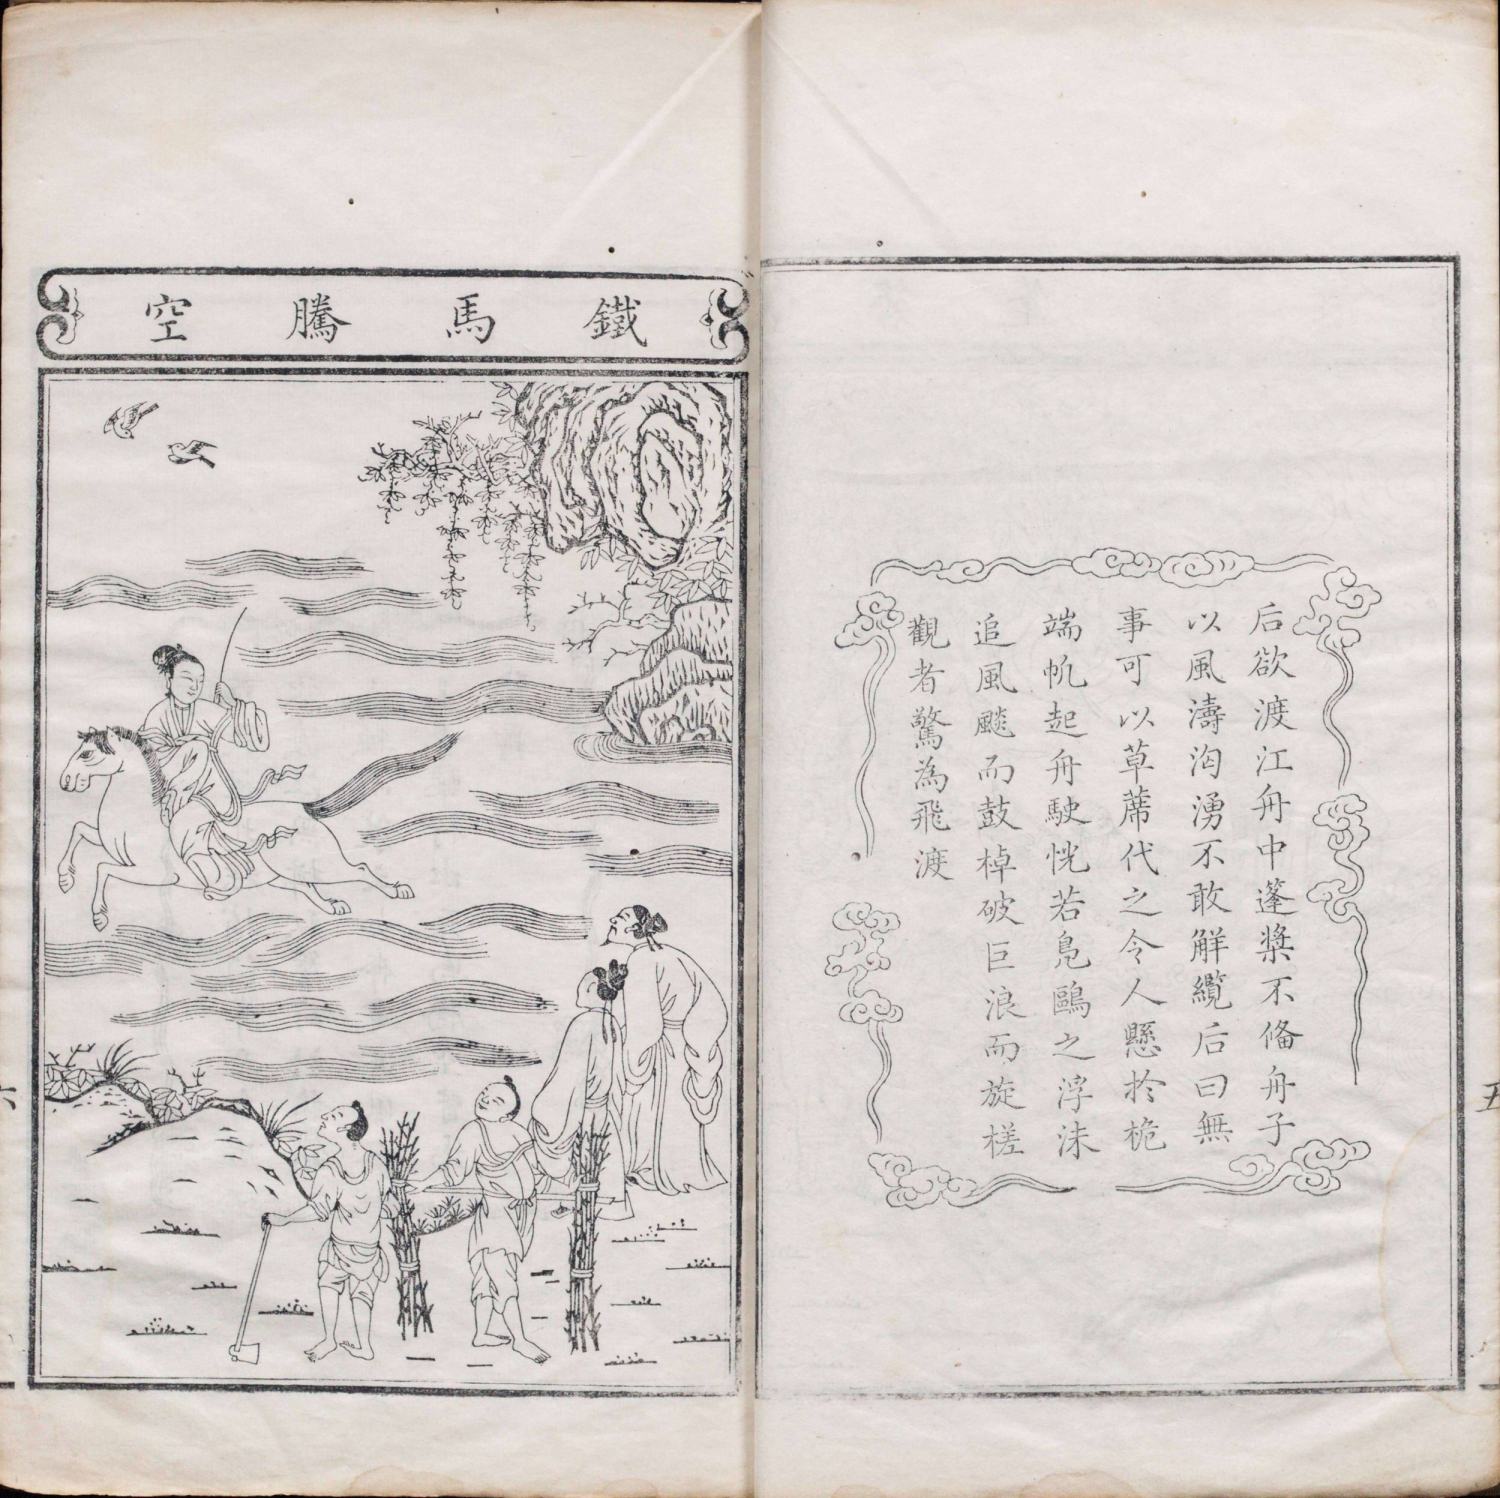 后欲渡江舟中蓬槳不俻舟子
以風濤洶湧不敢解纜后曰無
事可以草蓆代之令人懸於桅
端帆起舟駛恍若鳧鷗之浮沬
追風颷而鼓棹破巨浪而旋槎
觀者驚為飛渡
五
鐵馬騰空
六